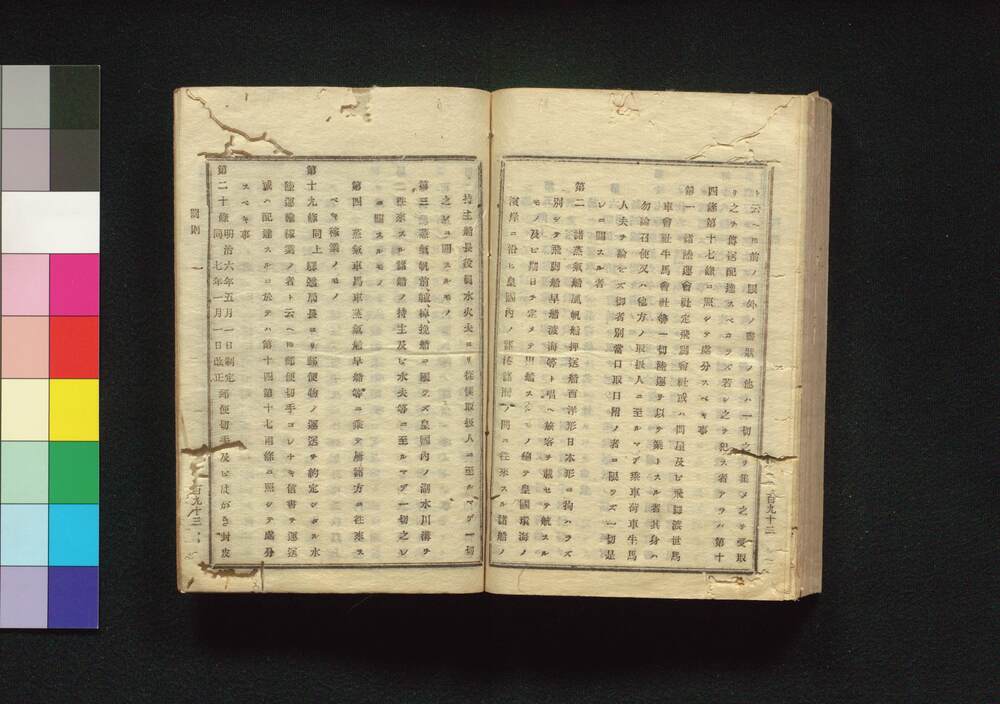 ト云ヘ𪜈前ノ限外ノ書狀ノ他ハ一切之ヲ集メ之ヲ受取
リ之ヲ傳送配達スベカラズ若シ之ヲ犯ス者アラバ第十
四條第十七條ニ照シテ處分スベキ事
第一 諸陸運會社定飛脚會社或ハ問屋及ビ飛脚渡世馬
車會社牛馬會社等一切陸運ヲ以テ業トスル者其身ハ
勿論召使又ハ他方ノ取扱人ニ至ルマデ乘車荷車牛馬
人夫ヲ論ゼズ御者別當口取日附ノ者ニ限ラズ一切是
レニ關スル者
第二 諸蒸氣船風帆船押送船西洋形日本形ニ拘ハラズ
別シテ飛脚船早船渡海等ト唱ヘ旅客ヲ載セテ航スル
モノ及ビ期日ヲ定メテ出船スルモノ總テ皇國環海ノ
河岸ニ沿ヒ皇國內ノ諸港諸海ノ間ニ往來スル諸船ノ
百九十三
持主船長役員水火夫ヨリ從僕取扱人ニ至ルマデ一切
之ニ關スルモノ
第三 蒸氣帆前艫棹挽船ニ限ラズ皇國內ノ湖水川溝ヲ
往來スル諸船ノ持主及ビ水夫等ニ至ルマデ一切之レ
ニ關スルモノ
第四 蒸氣車馬車蒸氣船早船等ニ乘テ所諸方ニ往來ス
ベキ稼業ノモノ
第十九條 同上 驛遞局長ヨリ郵便物ノ運送ヲ約定シタル水
陸運輸稼業ノ者ト云ヘ𪜈郵便切手コレナキ信書ヲ運送
或ハ配達スルニ於テハ第十四第十七兩條ニ照シテ處分
スベキ事
第二十條 明治六年五月一日制定 同七年一月一日改正 郵便切手及ビはがき封皮
罰則
百九十三